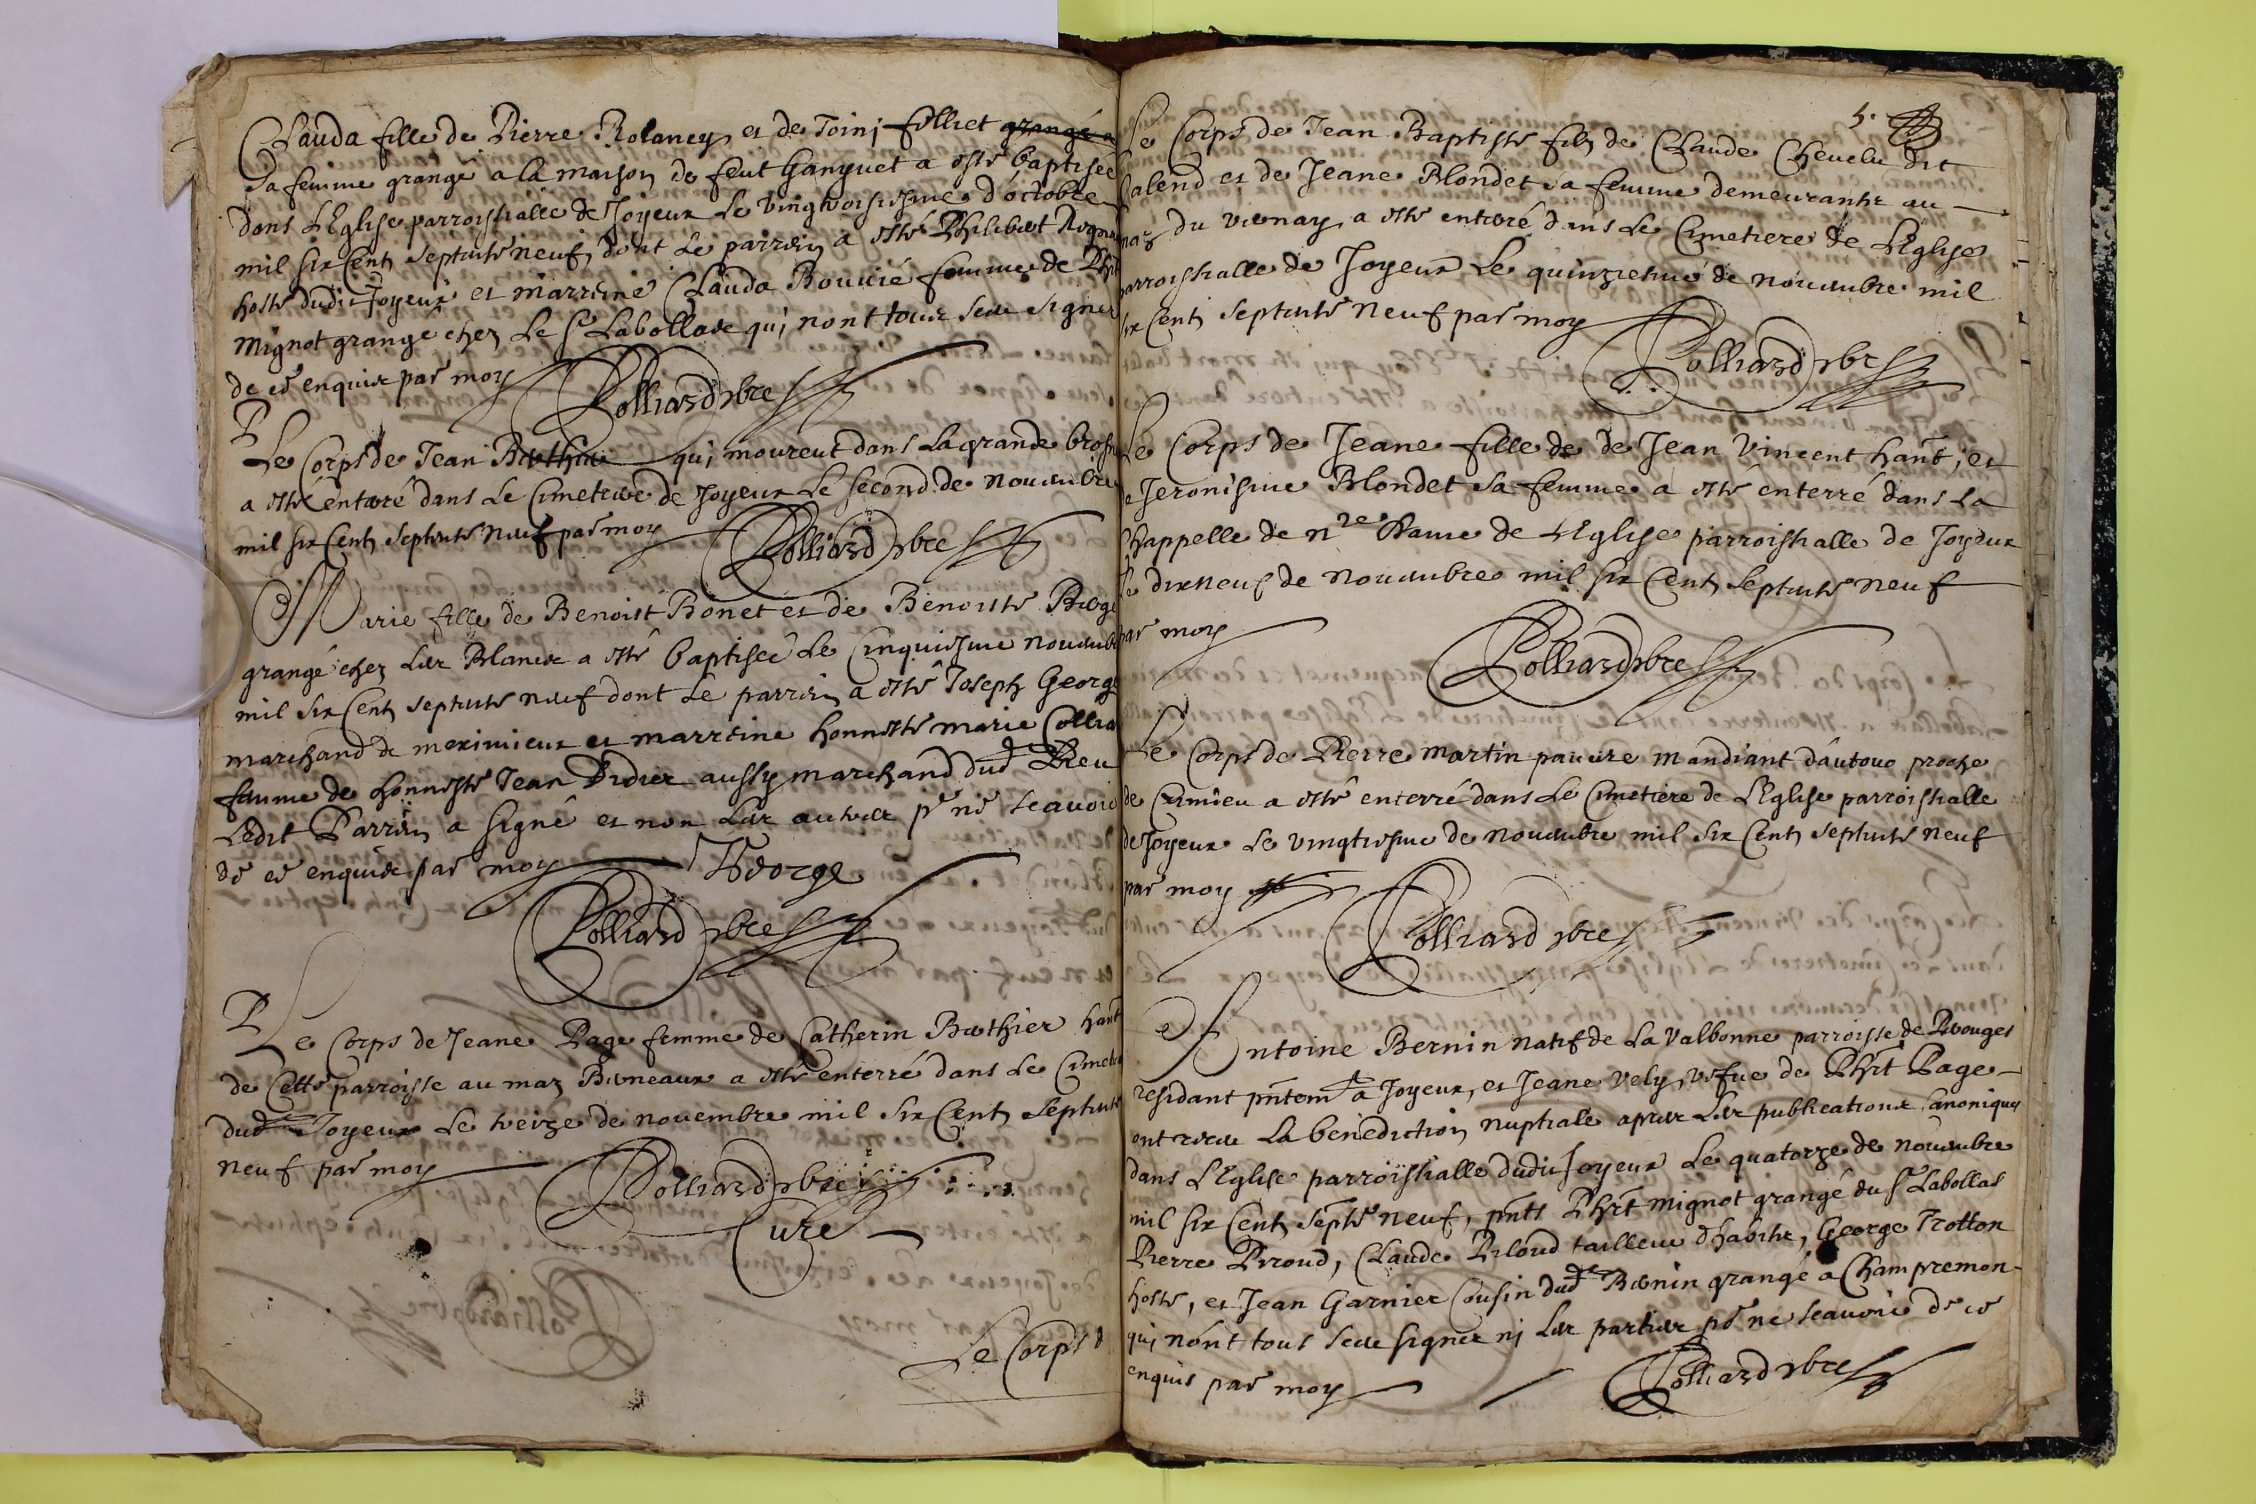 Clauda fille de Pierre Rolancy et de Toini filliet grangé a
sa femme grangé a la maison de feut Ganyuet a esté baptisée
dans L'Eglise parroissialle de Joyeux Le vingtroisiesme d'octobre
mil six Cents septante neuf, dont Le parrein a esté Philibert
hoste dudit Joyeux et marreine Clauda Bouvié femme de
Mignot grangé chez Le Sr Labollas qui nont tous sceu signer
de ce enquis par moy
Polliard pbre
Le Corps de Jean Berthier qui mourut dans La grande
a esté enterré dans Le Cimetiere de Joyeux Le second de Novembre
mil six Cents septante neuf par moy
Polliard pbre
Marie fille de Benoist Bonet et de Benoiste
grangé chez Les Blancs a esté baptisée Le Cinquiesme Novembre
mil six Cents septante neuf dont Le parrein a esté Joseph George
marchand de meximieux et marreine honneste marie
femme de honneste Jean Didier aussy marchand dudt Lieu
Ledit Parrein a signé et non Les autres pr ne scavoir
de ce enquis par moy
George
Polliard pbre
Le Corps de Jeane Page femme de Catherin Berthier hant
de Cette parroisse au maz Berneaux a esté enterré dans Le
dudt Joyeux Le treize de novembre mil six Cents septante
neuf par moy
Polliard pbre
Curé
Le Corps d
5.
Le Corps de Jean Baptiste filz de Claude Chevelu dit
Calend et de Jeane Blondet sa femme demeurants au
maz du viernay a esté enterré dans Le Cimetiere de L'Eglise
parroissialle de Joyeux Le quinzieme de novembre mil
six Cents septante neuf par moy
Polliard pbre
Le Corps de Jeane fille de de Jean Vincent hant, et
de Jeronisme Blondet sa femme a esté enterré dans La
Chappelle de nre Dame de L'Eglise parroissialle de Joyeux
Le dixneuf de Novembre mil six Cents septante neuf
par moy
Polliard pbre
Le Corps de Pierre martin pauvre mandiant d'autour proche
de Crimieu a esté enterré dans Le Cimetiere de L'Eglise parroissialle
de Joyeux Le vingtiesme de Novembre mil six Cents septante neuf
par moy
Polliard pbre
Antoine Bernin natif de La Valbonne parroisse de Perouges
residant pntemt a Joyeux, et Jeane vely vefue de Phrt Page
ont receu La benediction nuptiale apres Les publications Canoniques
dans L'Eglise parroissialle dudit Joyeux Le quatorze de novembre
mil six Cents septte neuf, pnts Phrt Mignot grangé du Sr Labollas
Pierre Piroud, Claude Piloud tailleur d'habits, George Trotton
hoste, et Jean Garnier Cousin dudt Bernin grangé a Champremon
qui nont tous sceu signer ni Les parties pr ne scavoir de ce
enquis par moy
Polliard pbre